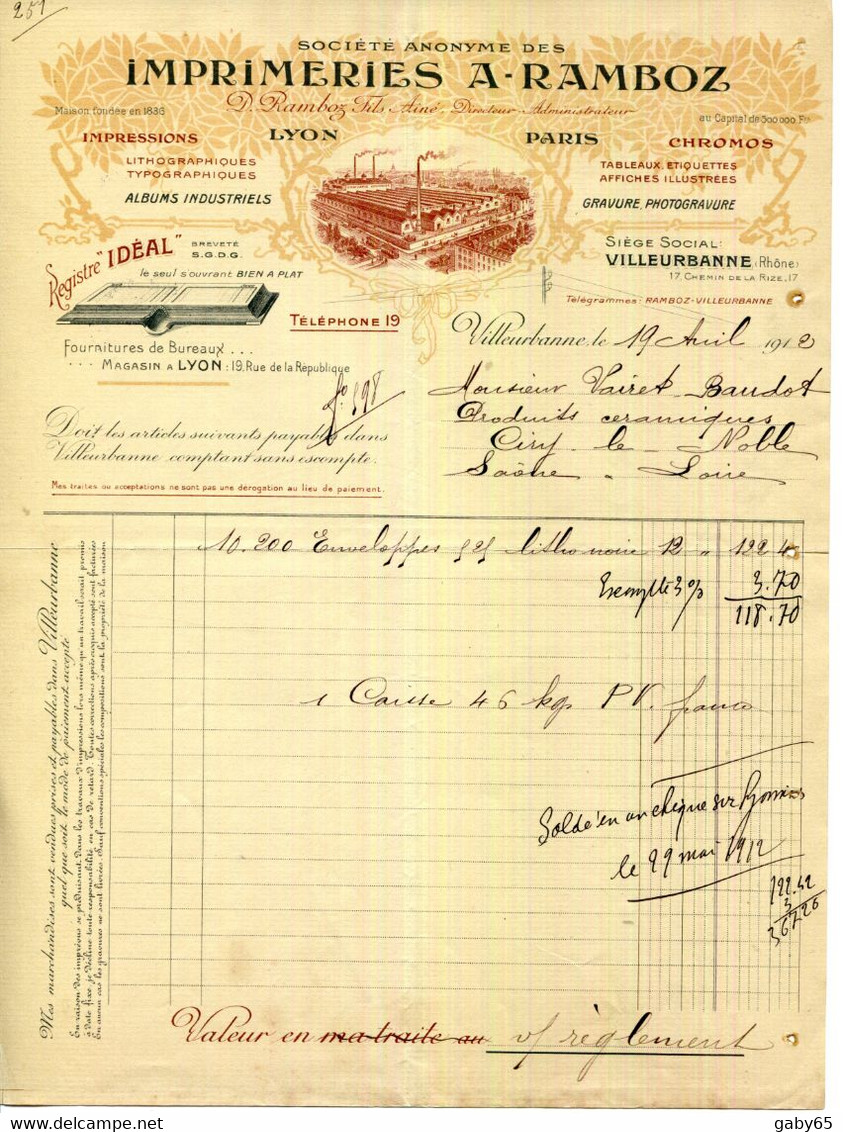 251
SOCIÉTÉ ANONYME DES
IMPRIMERIES A-RAMBOZ
D. Ramboz Fils Aîné, Directeur-Administrateur
Maison fondée en 1836
au Capital de 500 000 Frs
LYON PARIS
IMPRESSIONS
LITHOGRAPHIQUES
TYPOGRAPHIQUES
ALBUMS INDUSTRIELS
CHROMOS
TABLEAUX, ETIQUETTES
AFFICHES ILLUSTRÉES
GRAVURE, PHOTOGRAVURE
Registre "IDÉAL" BREVETÉ
S.G.D.G.
le seul s'ouvrant BIEN A PLAT
SIÈGE SOCIAL:
VILLEURBANNE (Rhône)
17, CHEMIN DE LA RIZE, 17
Télégrammes: RAMBOZ-VILLEURBANNE
TÉLÉPHONE 19
Fournitures de Bureaux ...
... MAGASIN A LYON : 19, Rue de la République
Villeurbanne, le 19 Avril 1912
fo. 598
Monsieur Vairet-Baudot
Produits ceramiques
Ciry-le-Noble
Saône-Loire
Doit les articles suivants payables dans
Villeurbanne comptant sans escompte.
Mes traites ou acceptations ne sont pas une dérogation au lieu de paiement.
10.200 Enveloppes 525 litho noire 12 " 122 4
Escompte 3 % 3.70
118.70
1 Caisse 46 kgs P.V. franco
Soldé en un chèque sur
le 29 mai 1912
122.42
3
367.26
Mes marchandises sont vendues prises et payables dans Villeurbanne
quel que soit le mode de paiement accepté
En raison des imprévus se produisant dans les travaux d'impressions lors même qu'un travail serait promis
à date fixe, je décline toute responsabilité en cas de retard. Toutes corrections après croquis accepté sont facturées
En aucun cas les gravures ne sont livrées. Sauf conventions spéciales les compositions sont la propriété de la maison
Valeur en ma traite au v/ règlement
gaby65